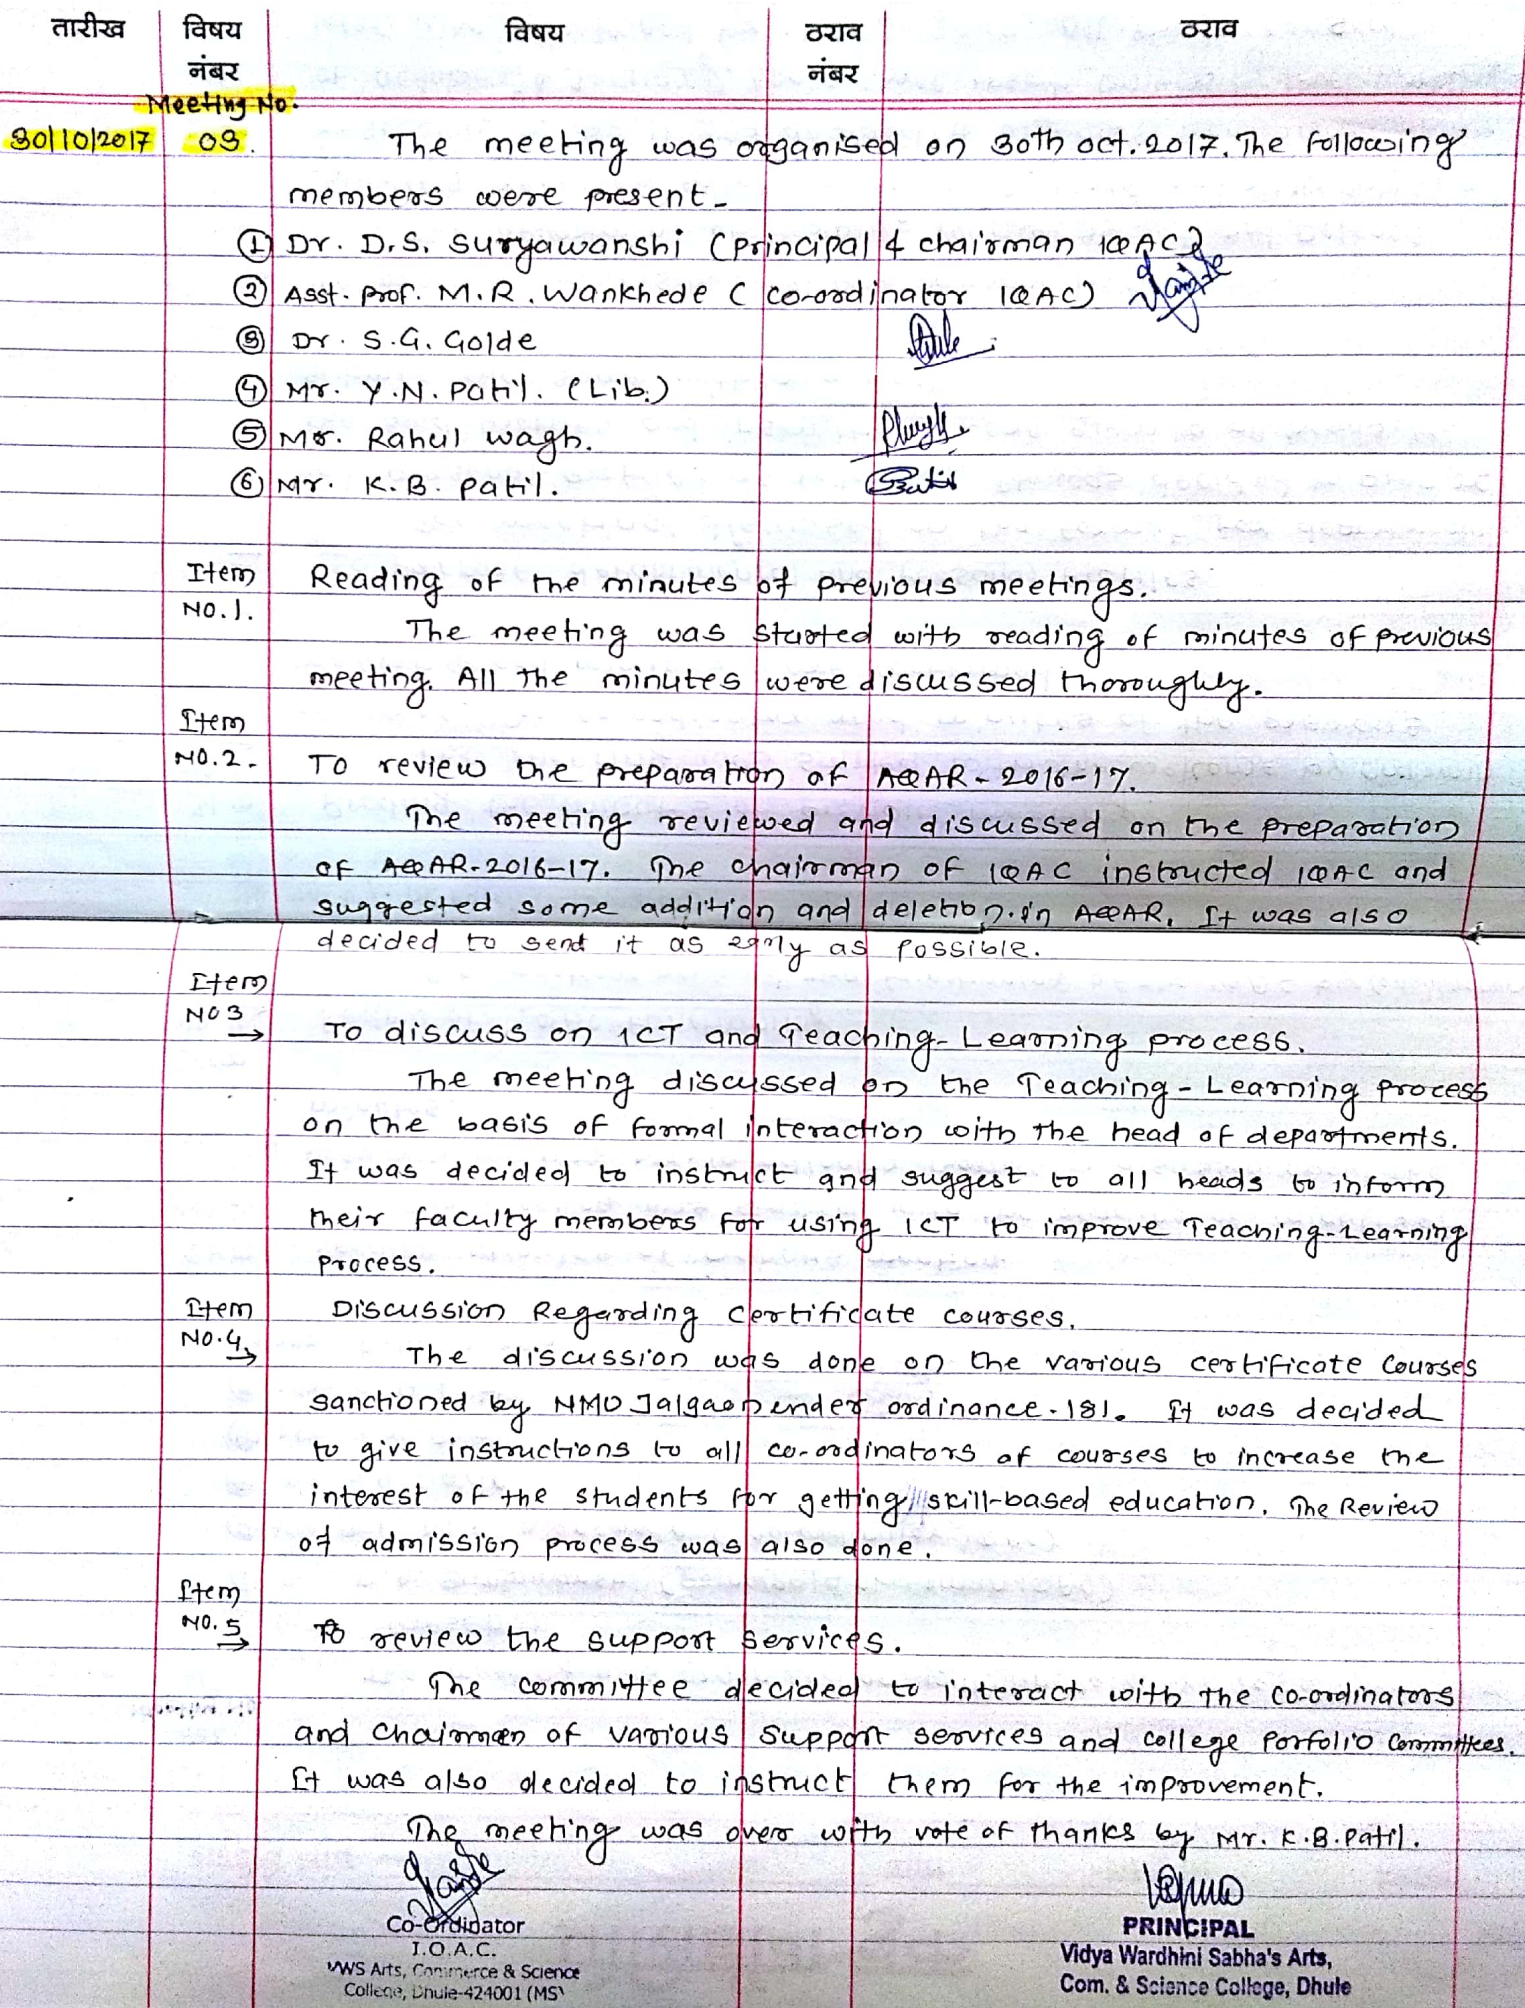 तारीख विषय नंबर विषय ठराव नंबर ठराव
Meeting No.
30/10/2017 03. The meeting was organised on 30th oct. 2017. The following
members were present-
① Dr. D.S. Suryawanshi (principal & chairman IQAC)
② Asst. prof. M.R. Wankhede ( co-ordinator IQAC)
③ Dr. S.G. Golde
④ Mr. Y.N. Patil. (Lib.)
⑤ Mr. Rahul Wagh.
⑥ Mr. K.B. Patil.
Item No.1. Reading of the minutes of previous meetings.
The meeting was started with reading of minutes of previous
meeting. All the minutes were discussed thoroughly.
Item
No.2. To review the preparation of AQAR-2016-17.
The meeting reviewed and discussed on the preparation
of AQAR-2016-17. The chairman of IQAC instructed IQAC and
suggested some addition and deletion in AQAR. It was also
decided to send it as early as possible.
Item
No 3 → To discuss on ICT and Teaching-Learning process.
The meeting discussed on the Teaching-Learning process
on the basis of formal interaction with the head of departments.
It was decided to instruct and suggest to all heads to inform
their faculty members for using ICT to improve Teaching-Learning
process.
Item Discussion Regarding certificate courses.
No.4 → The discussion was done on the various certificate courses
sanctioned by NMU Jalgaon under ordinance-181. It was decided
to give instructions to all co-ordinators of courses to increase the
interest of the students for getting skill-based education. The Review
of admission process was also done.
Item
No.5 → To review the support services.
The committee decided to interact with the co-ordinators
and chairman of various support services and college Porfolio Committees.
It was also decided to instruct them for the improvement.
The meeting was over with vote of thanks by Mr. K.B. Patil.
Co-Ordinator
I.Q.A.C.
VWS Arts, Commerce & Science
College, Dhule-424001 (MS)
PRINCIPAL
Vidya Wardhini Sabha's Arts,
Com. & Science College, Dhule